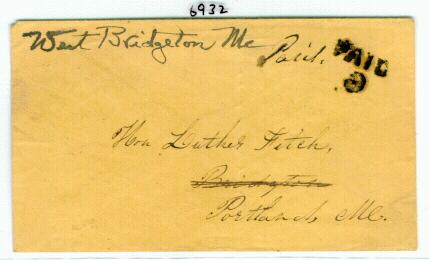 6932
West Bridgeton Me
Paid.
PAID
3
Hon Luther Fitch,
Bridgton
Portland, Me.